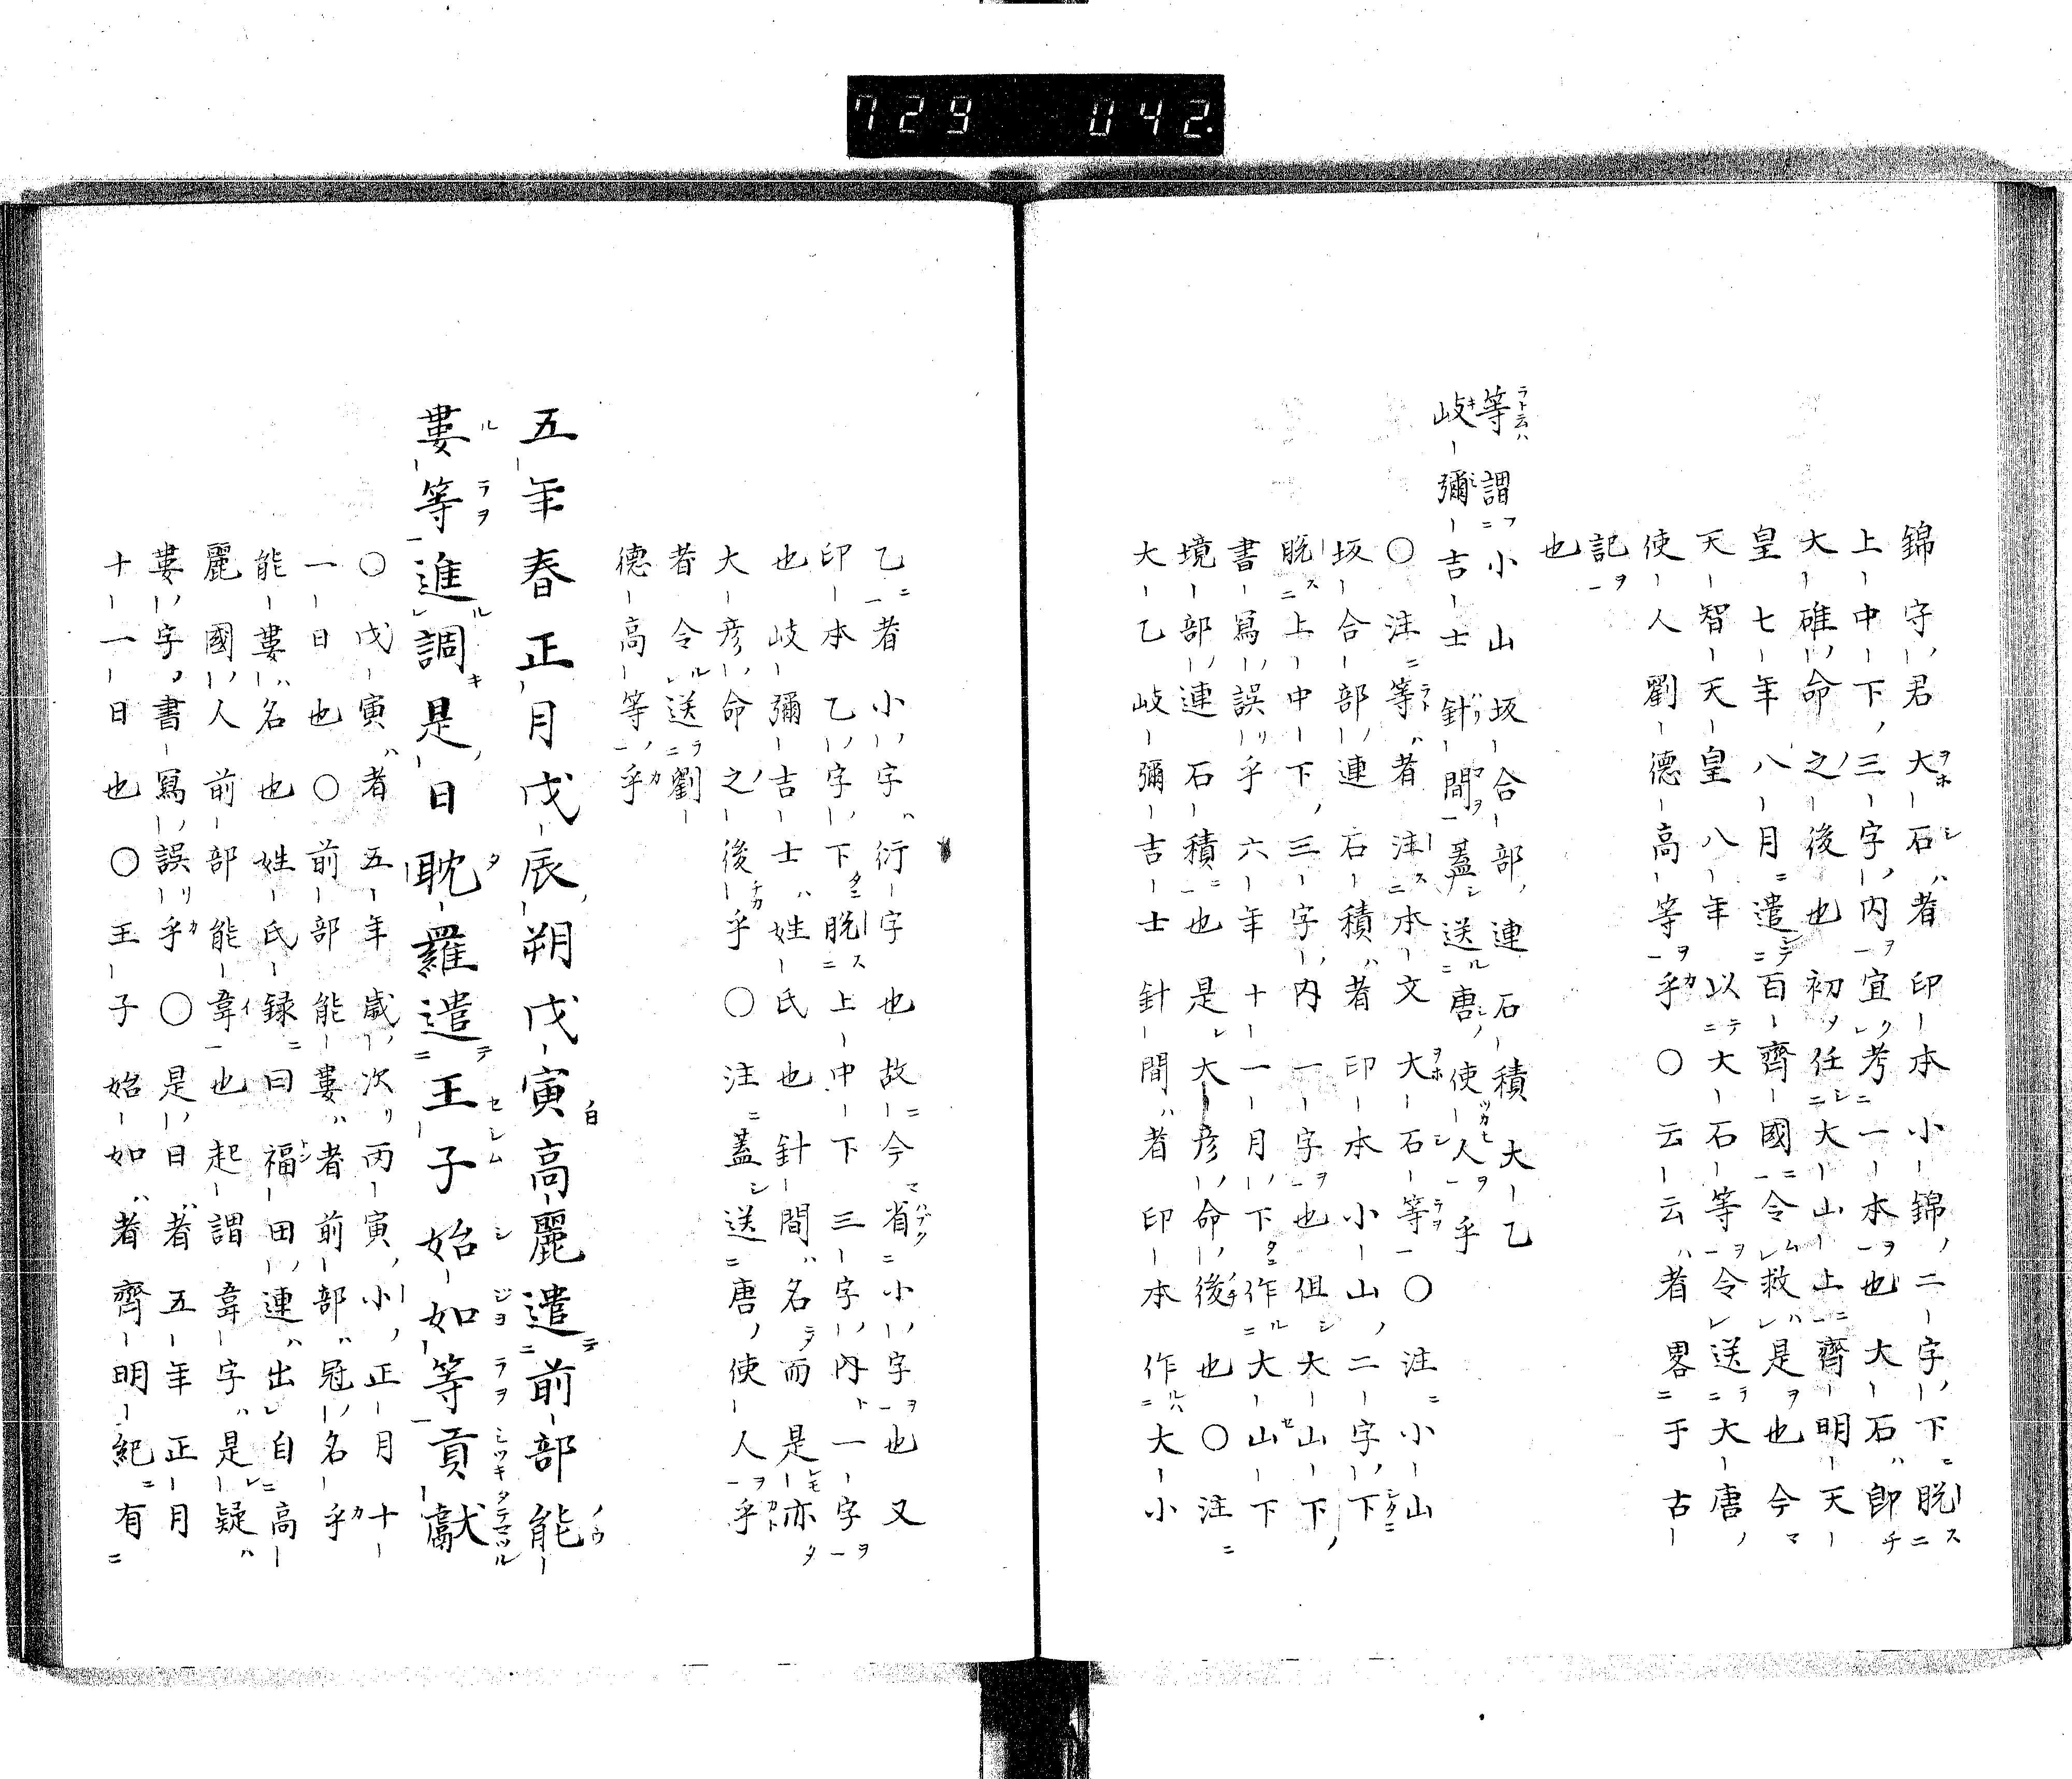 729 042.
錦守君大石者印本小錦二字下脱
上中下三字内宜考一本也大石即
大碓命之後也初任大山上齊明天
皇七年八月遣百齊國令救是也今
天智天皇八年以大石等令送大唐
使人劉德高等乎〇云云者畧于古
記
也
等謂小山坂合部連石積大乙
岐彌吉士針間蓋送唐使人乎
〇注等者注本文大石等〇注小山
坂合部連石積者印本小山二字下
脱上中下三字内一字也伹大山下
書寫誤乎六年十一月下作大山下
境部連石積也是大彦命後也〇注
大乙岐彌吉士針間者印本作大小
乙者小字衍字也故今省小字也又
印本乙字下脱上中下三字内一字
也岐彌吉士姓氏也針間名而是亦
大彦命之後乎〇注蓋送唐使人乎
者令送劉
德高等乎
五年春正月戊辰朔戊寅高麗遣前部能
婁等進調是日耽羅遣王子始如等貢獻
〇戊寅者五年歳次丙寅小正月十
一日也〇前部能婁者前部冠名乎
能婁名也姓氏録曰福田連出自高
麗國人前部能韋也起謂韋字是疑
婁字書寫誤乎〇是日者五年正月
十一日也〇王子始如者齊明紀有